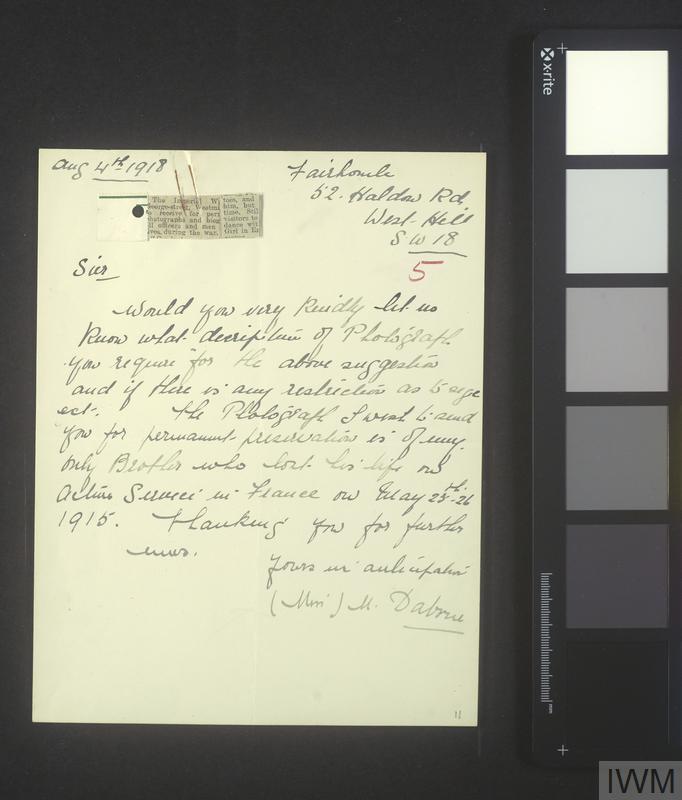 Aug 4th 1918
Fairholme
52. Haldon Rd
West Hill
S W 18
5
The Imperial W
George-street, Westmi
to receive for per
photographs and biog
ll officers and men
ives during the war.
toes, and
him, but
time. Still
visitors to
dance wi
Girl in E
Sir
Would you very kindly let us
know what decription of Photograph
you require for the above suggestion
and if there is any restriction as to size
ect. The Photograph I want to send
you for permanent preservation is of my
only Brother who lost his life on
Active Service in France on May 25th-26
1915. Thanking you for further
news.
Yours in anticipation
(Miss) M. Daborne
11
x-rite
mm
IWM